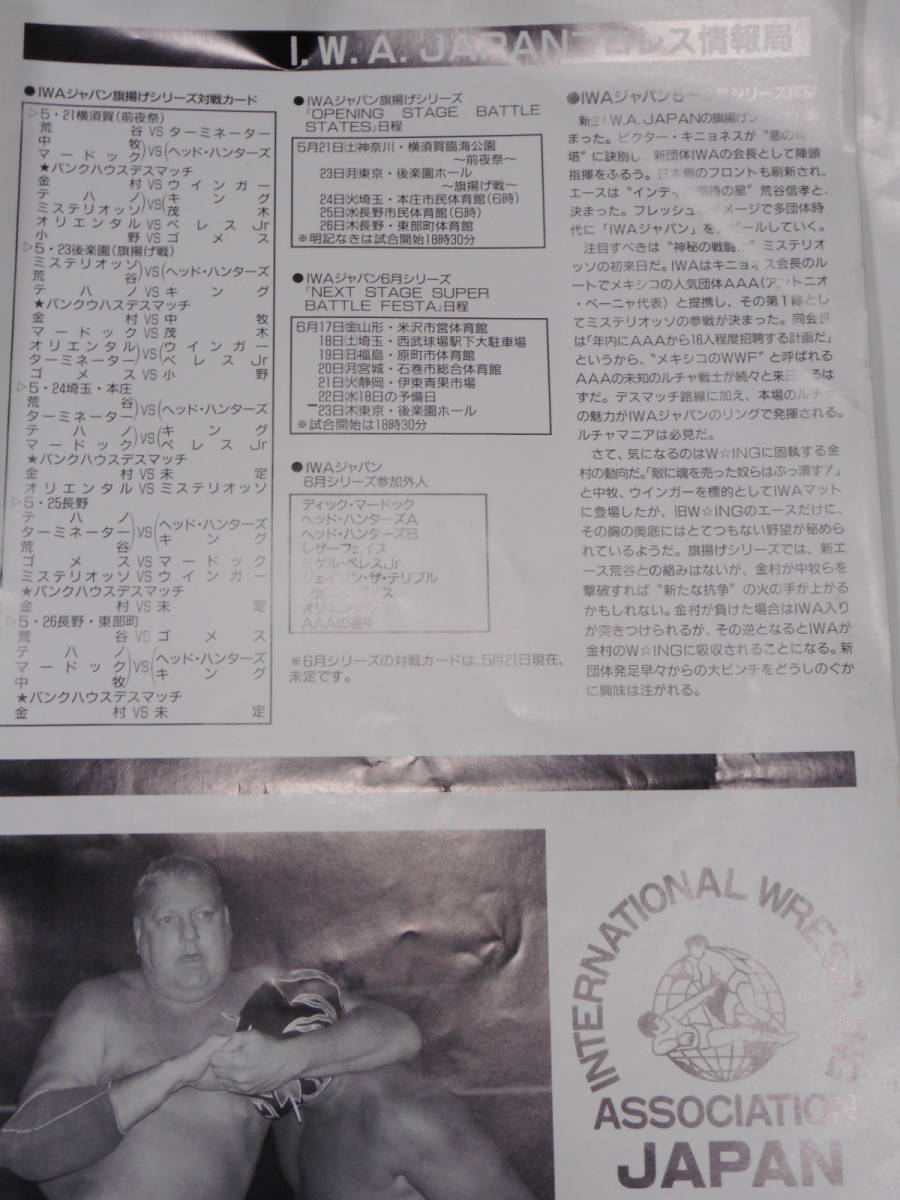 I.W.A. JAPANプロレス情報局
●IWAジャパン旗揚げシリーズ対戦カード
▷5・21横須賀(前夜祭)
荒谷VSターミネーター
中牧
マードック)VS(ヘッド・ハンターズ
★バンクハウスデスマッチ
金村VSウインガー
テハノ
ミステリオッソ)VS(キング
茂木
オリエンタルVSペレスJr
小野VSゴメス
▷5・23後楽園(旗揚げ戦)
ミステリオッソ
荒谷)VS(ヘッド・ハンターズ
テハノVSキング
★バンクウハスデスマッチ
金村VS中牧
マードックVS茂木
オリエンタル
ターミネーター)VS(ウインガー
ペレスJr
ゴメスVS小野
▷5・24埼玉・本庄
荒谷
ターミネーター)VS(ヘッド・ハンターズ
テハノ
マードック)VS(キング
ペレスJr
★バンクハウスデスマッチ
金村VS未定
オリエンタルVSミステリオッソ
▷5・25長野
テハノ
ターミネーター
荒谷)VS(ヘッド・ハンターズ
キング
ゴメスVSマードック
ミステリオッソVSウインガー
★バンクハウスデスマッチ
金村VS未定
▷5・26長野・東部町
荒谷VSゴメス
テハノ
マードック
中牧)VS(ヘッド・ハンターズ
キング
★バンクハウスデスマッチ
金村VS未定
●IWAジャパン旗揚げシリーズ
『OPENING STAGE BATTLE
STATES』日程
5月21日㈯神奈川・横須賀臨海公園
〜前夜祭〜
23日㈪東京・後楽園ホール
〜旗揚げ戦〜
24日㈫埼玉・本庄市民体育館(6時)
25日㈬長野市民体育館(6時)
26日㈭長野・東部町体育館
※明記なきは試合開始18時30分
●IWAジャパン6月シリーズ
『NEXT STAGE SUPER
BATTLE FESTA』日程
6月17日㈮山形・米沢市営体育館
18日㈯埼玉・西武球場駅下大駐車場
19日㈰福島・原町市体育館
20日㈪宮城・石巻市総合体育館
21日㈫静岡・伊東青果市場
22日㈬18日の予備日
23日㈭東京・後楽園ホール
※試合開始は18時30分
●IWAジャパン
6月シリーズ参加外人
ディック・マードック
ヘッド・ハンターズA
ヘッド・ハンターズB
レザーフェイス
ミゲル・ペレスJr
ジェイソン・ザ・テリブル
オリエンタル
AAAの選手
※6月シリーズの対戦カードは、5月21日現在、
未定です。
●IWAジャパン5〜 月シリーズ展望
新生I.W.A. JAPANの旗揚げ
まった。ビクター・キニョネスが〝悪の 
塔〟に訣別し、新団体IWAの会長として陣頭
指揮をふるう。日本側のフロントも刷新され、
エースは〝インディの期待の星〟荒谷信孝と、
決まった。フレッシュなイメージで多団体時
代に「IWAジャパン」をアピールしていく。
注目すべきは〝神秘の戦 〟ミステリオ
ッソの初来日だ。IWAはキニョネス会長のル
ートでメキシコの人気団体AAA(アントニオ
・ペーニャ代表)と提携し、その第1陣とし
てミステリオッソの参戦が決まった。同会長
は「年内にAAAから16人程度招聘する計画だ」
というから、〝メキシコのWWF〟と呼ばれる
AAAの未知のルチャ戦士が続々と来日するは
ずだ。デスマッチ路線に加え、本場のルチャ
の魅力がIWAジャパンのリングで発揮される。
ルチャマニアは必見だ。
さて、気になるのはW☆INGに固執する金
村の動向だ。「敵に魂を売った奴らはぶっ潰す!」
と中牧、ウインガーを標的としてIWAマット
に登場したが、旧W☆INGのエースだけに、
その胸の奥底にはとてつもない野望が秘めら
れているようだ。旗揚げシリーズでは、新エ
ース荒谷との絡みはないが、金村が中牧らを
撃破すれば〝新たな抗争〟の火の手が上がる
かもしれない。金村が負けた場合はIWA入り
が突きつけられるが、その逆となるとIWAが
金村のW☆INGに吸収されることになる。新
団体発足早々からの大ピンチをどうしのぐか
に興味は注がれる。
INTERNATIONAL WRESTLING
ASSOCIATION
JAPAN